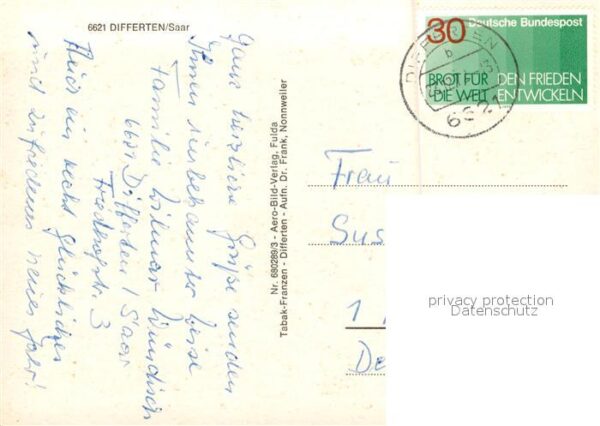 6621 DIFFERTEN/Saar
Ganz herzliche Grüße senden
Ihnen in unbekannter Weise
Familie Wilmar
6621 Differten / Saar
3
Auch ein recht glückliches
und zufriedenes neues Jahr!
Nr. 680289/3 - Aero-Bild-Verlag, Fulda
Tabak-Franzen - Differten - Aufn. Dr. Frank, Nonnweiler
30 Deutsche Bundespost
BROT FÜR DEN FRIEDEN
DIE WELT ENTWICKELN
DIFFERTEN
b
6621
Frau
Sus
1
De
privacy protection
Datenschutz